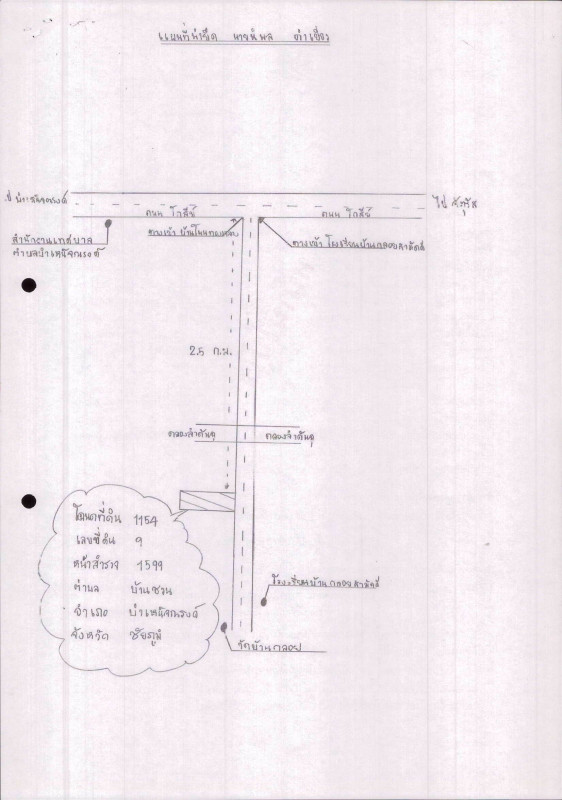 แผนที่นำรังวัด นายนำพล
ไป บำเหน็จณรงค์
ถนน โกสีย์
ถนน โกสีย์
ไป จัตุรัส
สำนักงานเทศบาล
ตำบลบำเหน็จณรงค์
ทางเข้า
ทางเข้า โรงเรียนบ้านกลอย
2.5 ก.ม.
คลองลำคันฉู
คลองลำคันฉู
โฉนดที่ดิน 1154
เลขที่ดิน 9
หน้าสำรวจ 1599
ตำบล บ้านชวน
อำเภอ บำเหน็จณรงค์
จังหวัด ชัยภูมิ
โรงเรียนบ้านกลอย
วัดบ้านกลอย